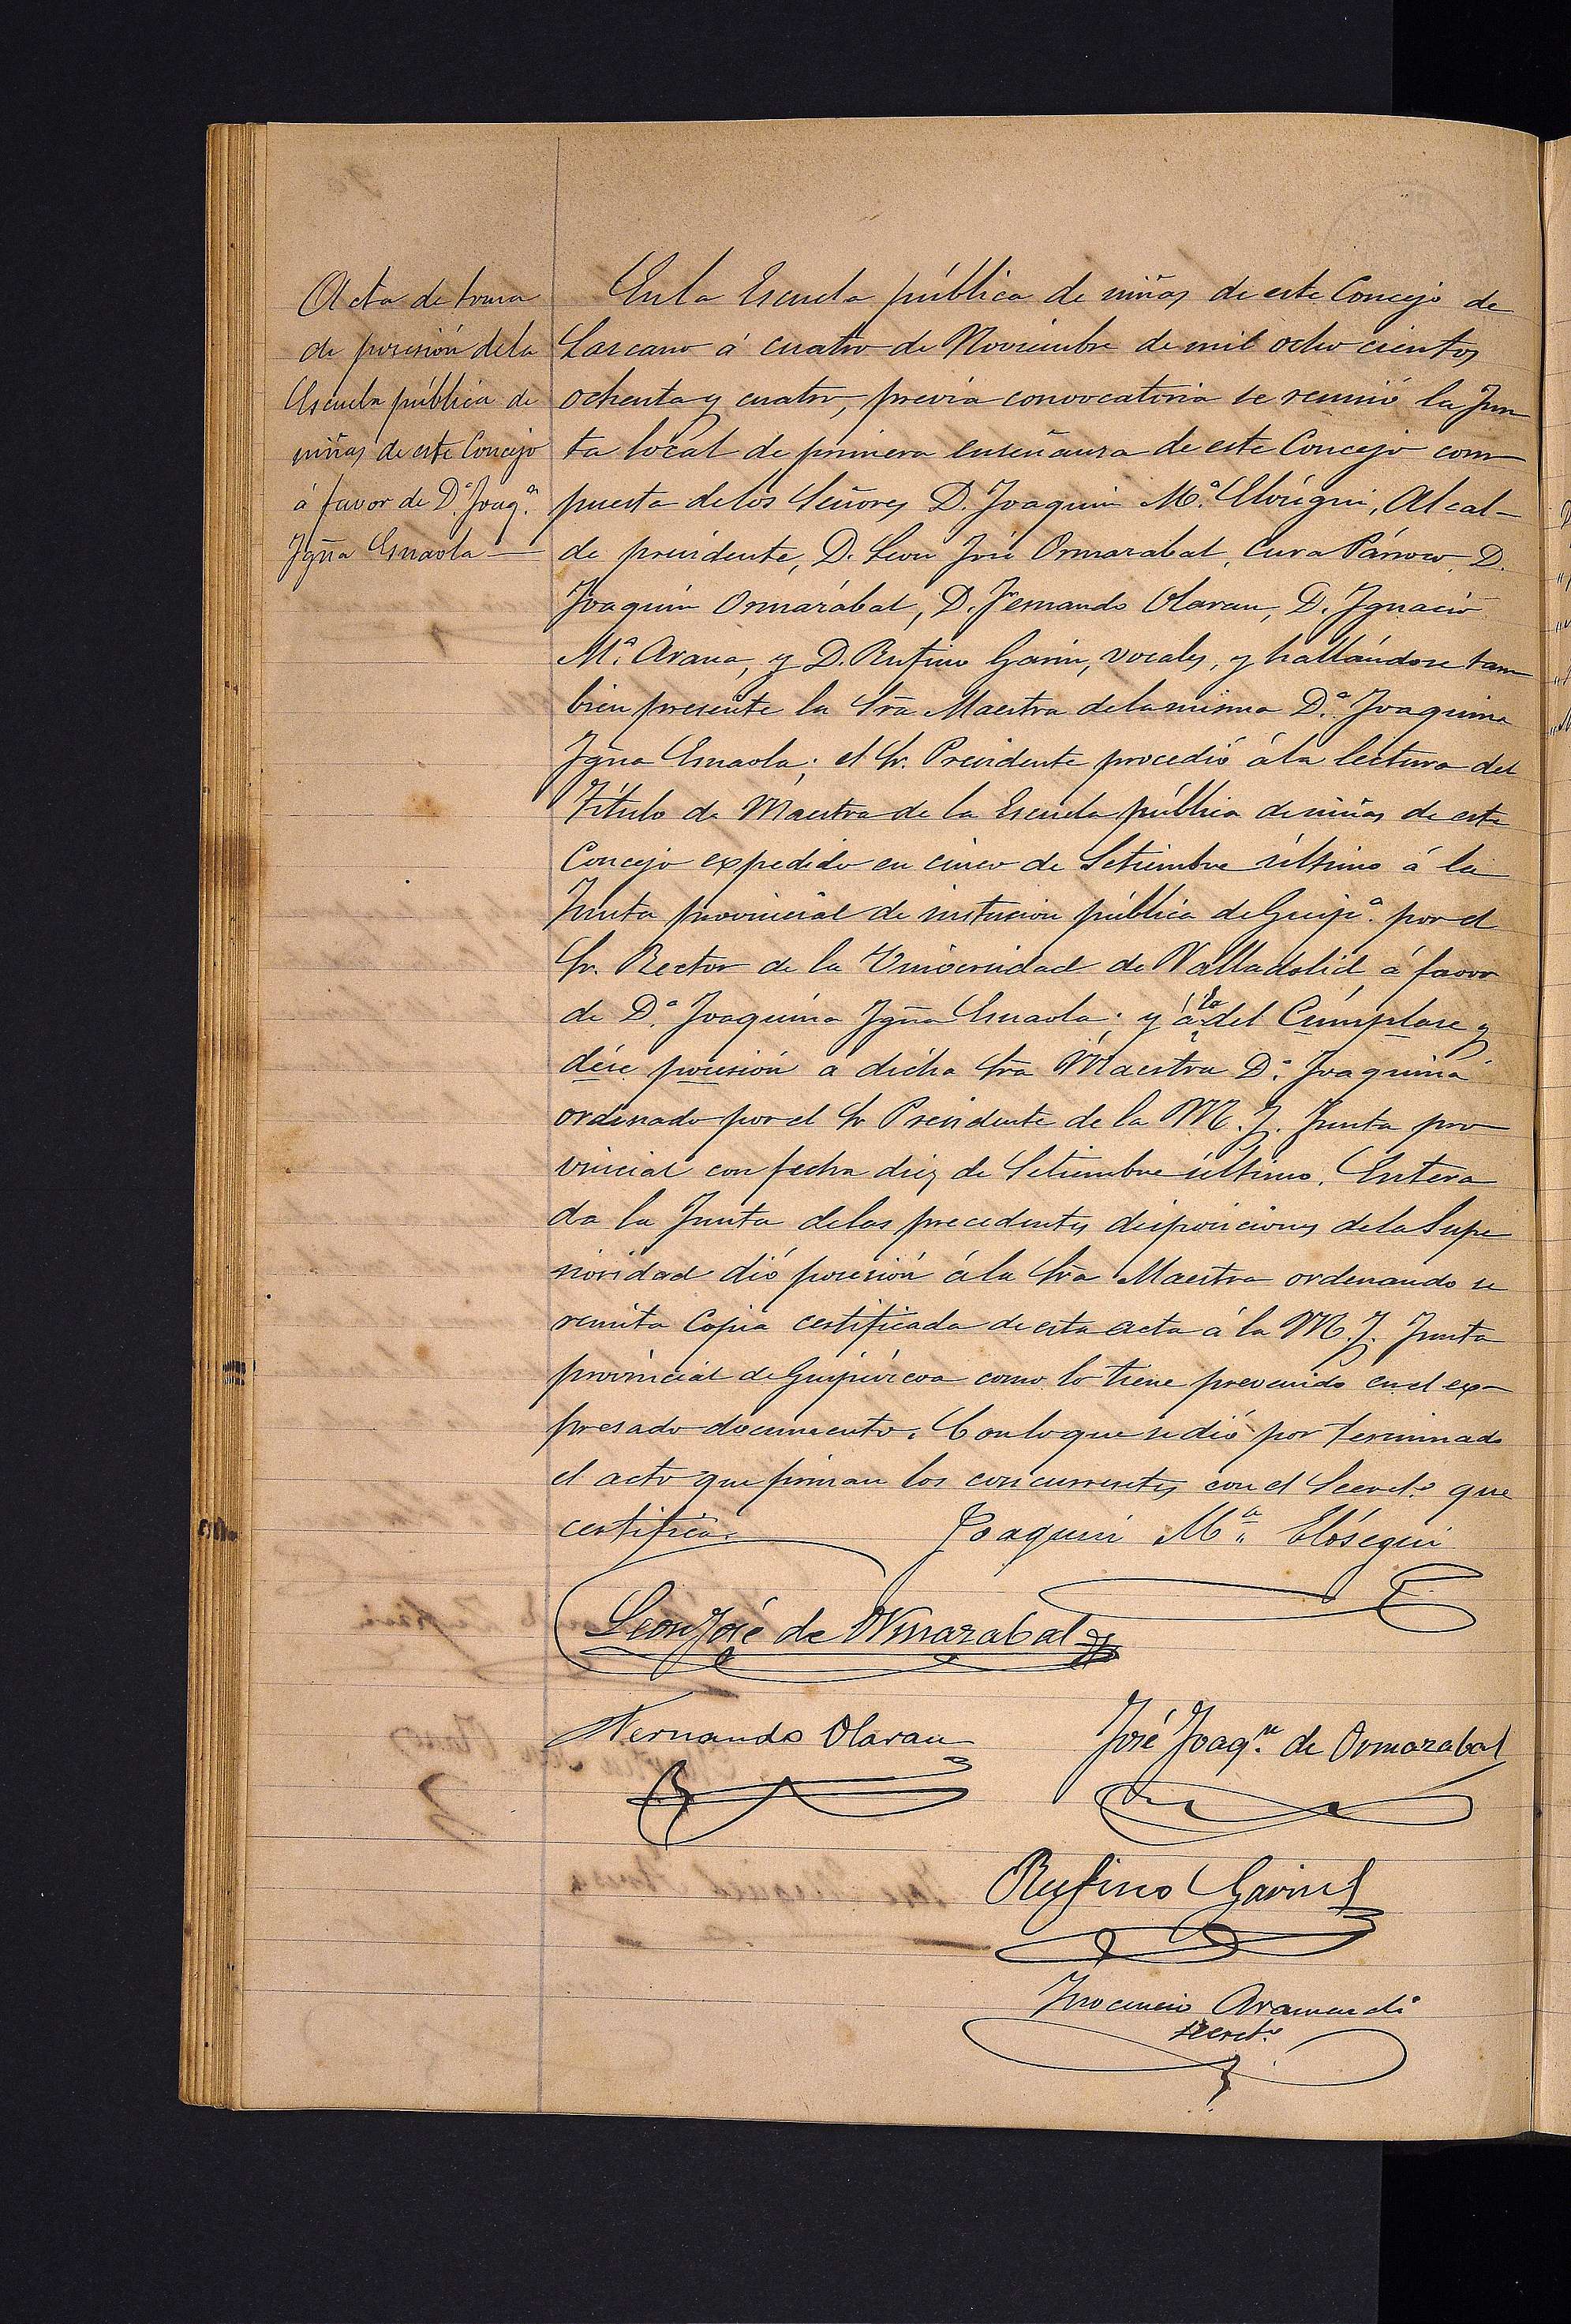 Acta de toma
de posesión de la
Escuela pública de
niñas de este Concejo
á favor de D.ª Joaq.ª
Ygña Esnaola—
En la Escuela pública de niñas de este Concejo de
Lazcano á cuatro de Noviembre de mil ocho cientos
ochenta y cuatro, prévia convocatoria se reunió la Jun
ta local de primera enseñanza de este Concejo com
puesta de los Señores D. Joaquin M.ª Elósegui, Alcal-
de presidente, D. Leon José Ormazabal, Cura Párroco, D.
Joaquin Ormazábal, D. Fernando Olaran, D. Ygnacio
M.ª Arana, y D. Rufino Garin, vocales, y hallándose tam
bien presente la Sra Maestra de la misma D.ª Joaquina
Ygña Esnaola; el Sr. Presidente procedió á la lectura del
Título de Maestra de la Escuela pública de niñas de este
Concejo expedido en cinco de Setiembre último á la
Junta provincial de instrucion pública de Guip.ª por el
Sr. Rector de la Universidad de Valladolid á favor
de D.ª Joaquina Ygña Esnaola; y á la del Cúmplase y
dése posesión á dicha Sra Maestra D.ª Joaquina
ordenado por el Sr Presidente de la M. Y. Junta pro
vincial con fecha diez de Setiembre último. Entera
da la Junta de las precedentes disposiciones de la Supe
rioridad dió posesión á la Sra Maestra ordenando se
remita Copia certificada de esta acta á la M. Y. Junta
provincial de Guipúzcoa como lo tiene prevenido en el ex-
presado documento. Con lo que se dió por terminado
el acto que firman los concurrentes con el Secret.º que
certifica.
Joaquin M.ª Elósegui
Leon José de Ormazabal
Fernando Olaran
José Joaq.n de Ormazabal
Rufino Garin
Ynocencio Aramendi
secret.º